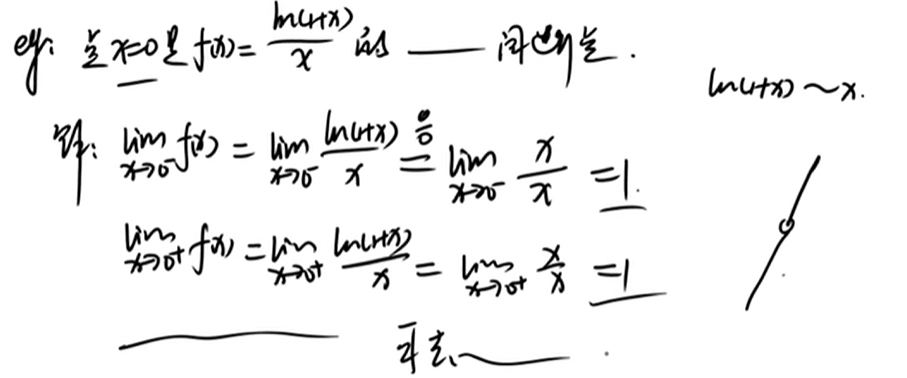 eg: 点x=0是f(x)=ln(1+x)/x 的 ____ 间断点.
ln(1+x)~x.
解: lim_{x→0⁻} f(x) = lim_{x→0⁻} ln(1+x)/x \overset{0/0}{=} lim_{x→0⁻} x/x = 1.
lim_{x→0⁺} f(x) = lim_{x→0⁺} ln(1+x)/x = lim_{x→0⁺} x/x = 1
可去